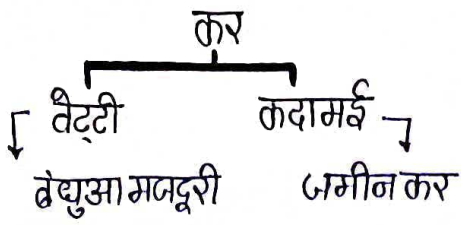 कर
वेट्टी कदामई
बंधुआ मजदूरी जमीन कर